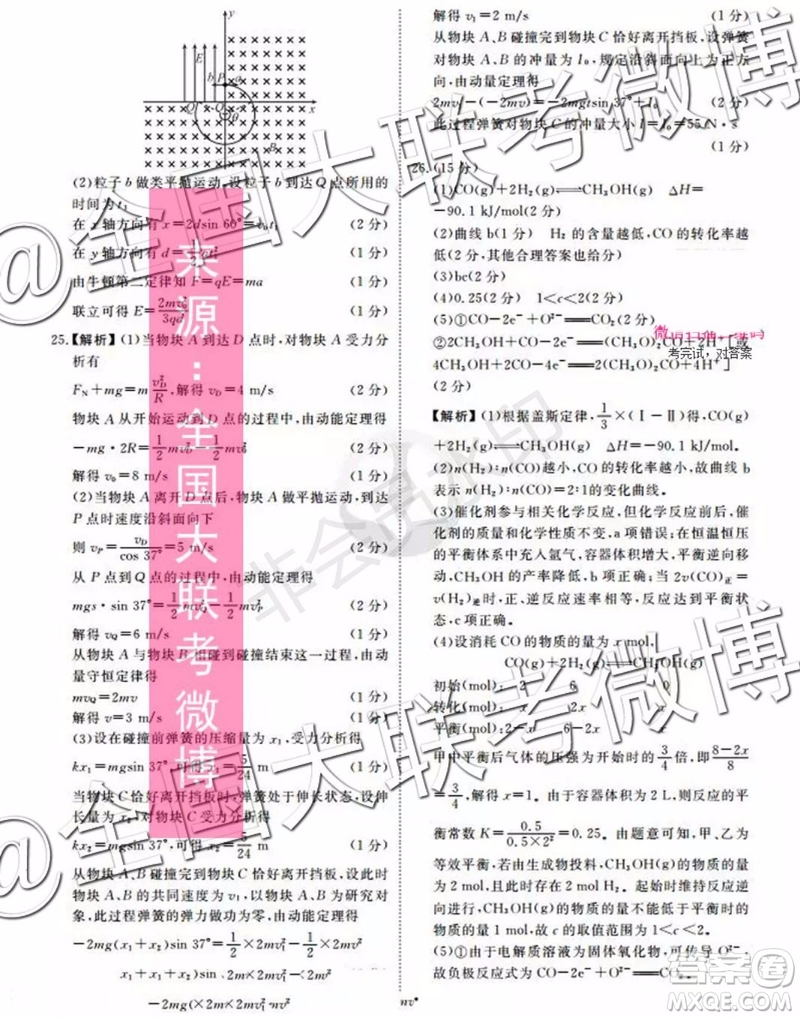 y
E
b
P
a
Q
O
θ
x
B
(2)粒子b做类平抛运动,设粒子b到达Q点所用的
时间为t₁
在x轴方向有x=2dsin 60°=v₀t₁ (2分)
在y轴方向有d= (2分)
由牛顿第二定律知F=qE=ma (1分)
联立可得E=2mv₀²/3qd (1分)
25.【解析】(1)当物块A到达D点时,对物块A受力分
析有
F_N+mg=m v_D²/R,解得v_D=4 m/s (2分)
物块A从开始运动到D点的过程中,由动能定理得
-mg·2R=1/2 mv_D²-1/2 mv₀² (2分)
解得v₀=8 m/s (1分)
(2)当物块A离开D点后,物块A做平抛运动,到达
P点时速度沿斜面向下
则v_P=v_D/cos 37°=5 m/s (2分)
从P点到Q点的过程中,由动能定理得
mgs·sin 37°=1/2 mv_Q²-1/2 mv_P² (2分)
解得v_Q=6 m/s (1分)
从物块A与物块B相碰到碰撞结束这一过程,由动
量守恒定律得
mv_Q=2mv (1分)
解得v=3 m/s (1分)
(3)设在碰撞前弹簧的压缩量为x₁,受力分析得
kx₁=mgsin 37°,可得x₁=5/24 m (1分)
当物块C恰好离开挡板时,弹簧处于伸长状态,设伸
长量为x₂,对物块C受力分析得
kx₂=mgsin 37°,可得x₂=5/24 m (1分)
从物块A、B碰撞完到物块C恰好离开挡板时,设物
块A、B的共同速度为v₁,以物块A、B为研究对
象,此过程弹簧的弹力做功为零,由动能定理得
-2mg(x₁+x₂)sin 37°=1/2×2mv₁²-1/2×2mv²
解得v₁=2 m/s (1分)
从物块A、B碰撞完到物块C恰好离开挡板,设弹簧
对物块A、B的冲量为I₀,规定沿斜面向上为正方
向,由动量定理得
2mv₁-(-2mv)=-2mgtsin 37°+I₀ (2分)
此过程弹簧对物块C的冲量大小I=I₀=55 N·s
(1分)
26.(15分)
(1)CO(g)+2H₂(g)⇌CH₃OH(g) ΔH=
-90.1 kJ/mol(2分)
(2)曲线b(1分) H₂的含量越低,CO的转化率越
低(2分,其他合理答案也给分)
(3)bc(2分)
(4)0.25(2分) 1<c<2(2分)
(5)①CO-2e⁻+O²⁻═CO₂(2分)
②2CH₃OH+2CO-2e⁻═(CH₃O)₂CO+2H⁺[或
4CH₃OH+2CO+O₂-4e⁻═2(CH₃O)₂CO+4H⁺]
考完试,对答案
(2分)
【解析】(1)根据盖斯定律,1/3×(Ⅰ-Ⅱ)得CO(g)
+2H₂(g)⇌CH₃OH(g) ΔH=-90.1 kJ/mol。
(2)n(H₂):n(CO)越小,CO的转化率越小,故曲线b
表示n(H₂):n(CO)=2:1的变化曲线。
(3)催化剂参与相关化学反应,但化学反应前后,催
化剂的质量和化学性质不变,a项错误;在恒温恒压
的平衡体系中充入氩气,容器体积增大,平衡逆向移
动,CH₃OH的产率降低,b项正确;当2v(CO)正=
v(H₂)逆时,正、逆反应速率相等,反应达到平衡状
态,c项正确。
(4)设消耗CO的物质的量为x mol,
CO(g)+2H₂(g)⇌CH₃OH(g)
初始(mol): 2 6 0
转化(mol): x 2x x
平衡(mol):2-x 6-2x x
甲中平衡后气体的压强为开始时的3/4倍,即(8-2x)/8
=3/4,解得x=1。由于容器体积为2 L,则反应的平
衡常数K=0.5/(0.5×2²)=0.25。由题意可知,甲、乙为
等效平衡,若由生成物投料,CH₃OH的物质的量
为2 mol,且存在2 mol H₂。起始时维持反应逆
向进行,CH₃OH的物质的量不能低于平衡时的
物质的量1 mol,故c的取值范围为1<c<2。
(5)①由于电解质溶液为固体氧化物,可传导O²⁻,
故负极反应式为CO-2e⁻+O²⁻═CO₂。
x₁+x₂)sin
来源：全国大联考微博
@全国大联考微博
@全国大联考微博
非会员水印
答案圈
MXQE.COM